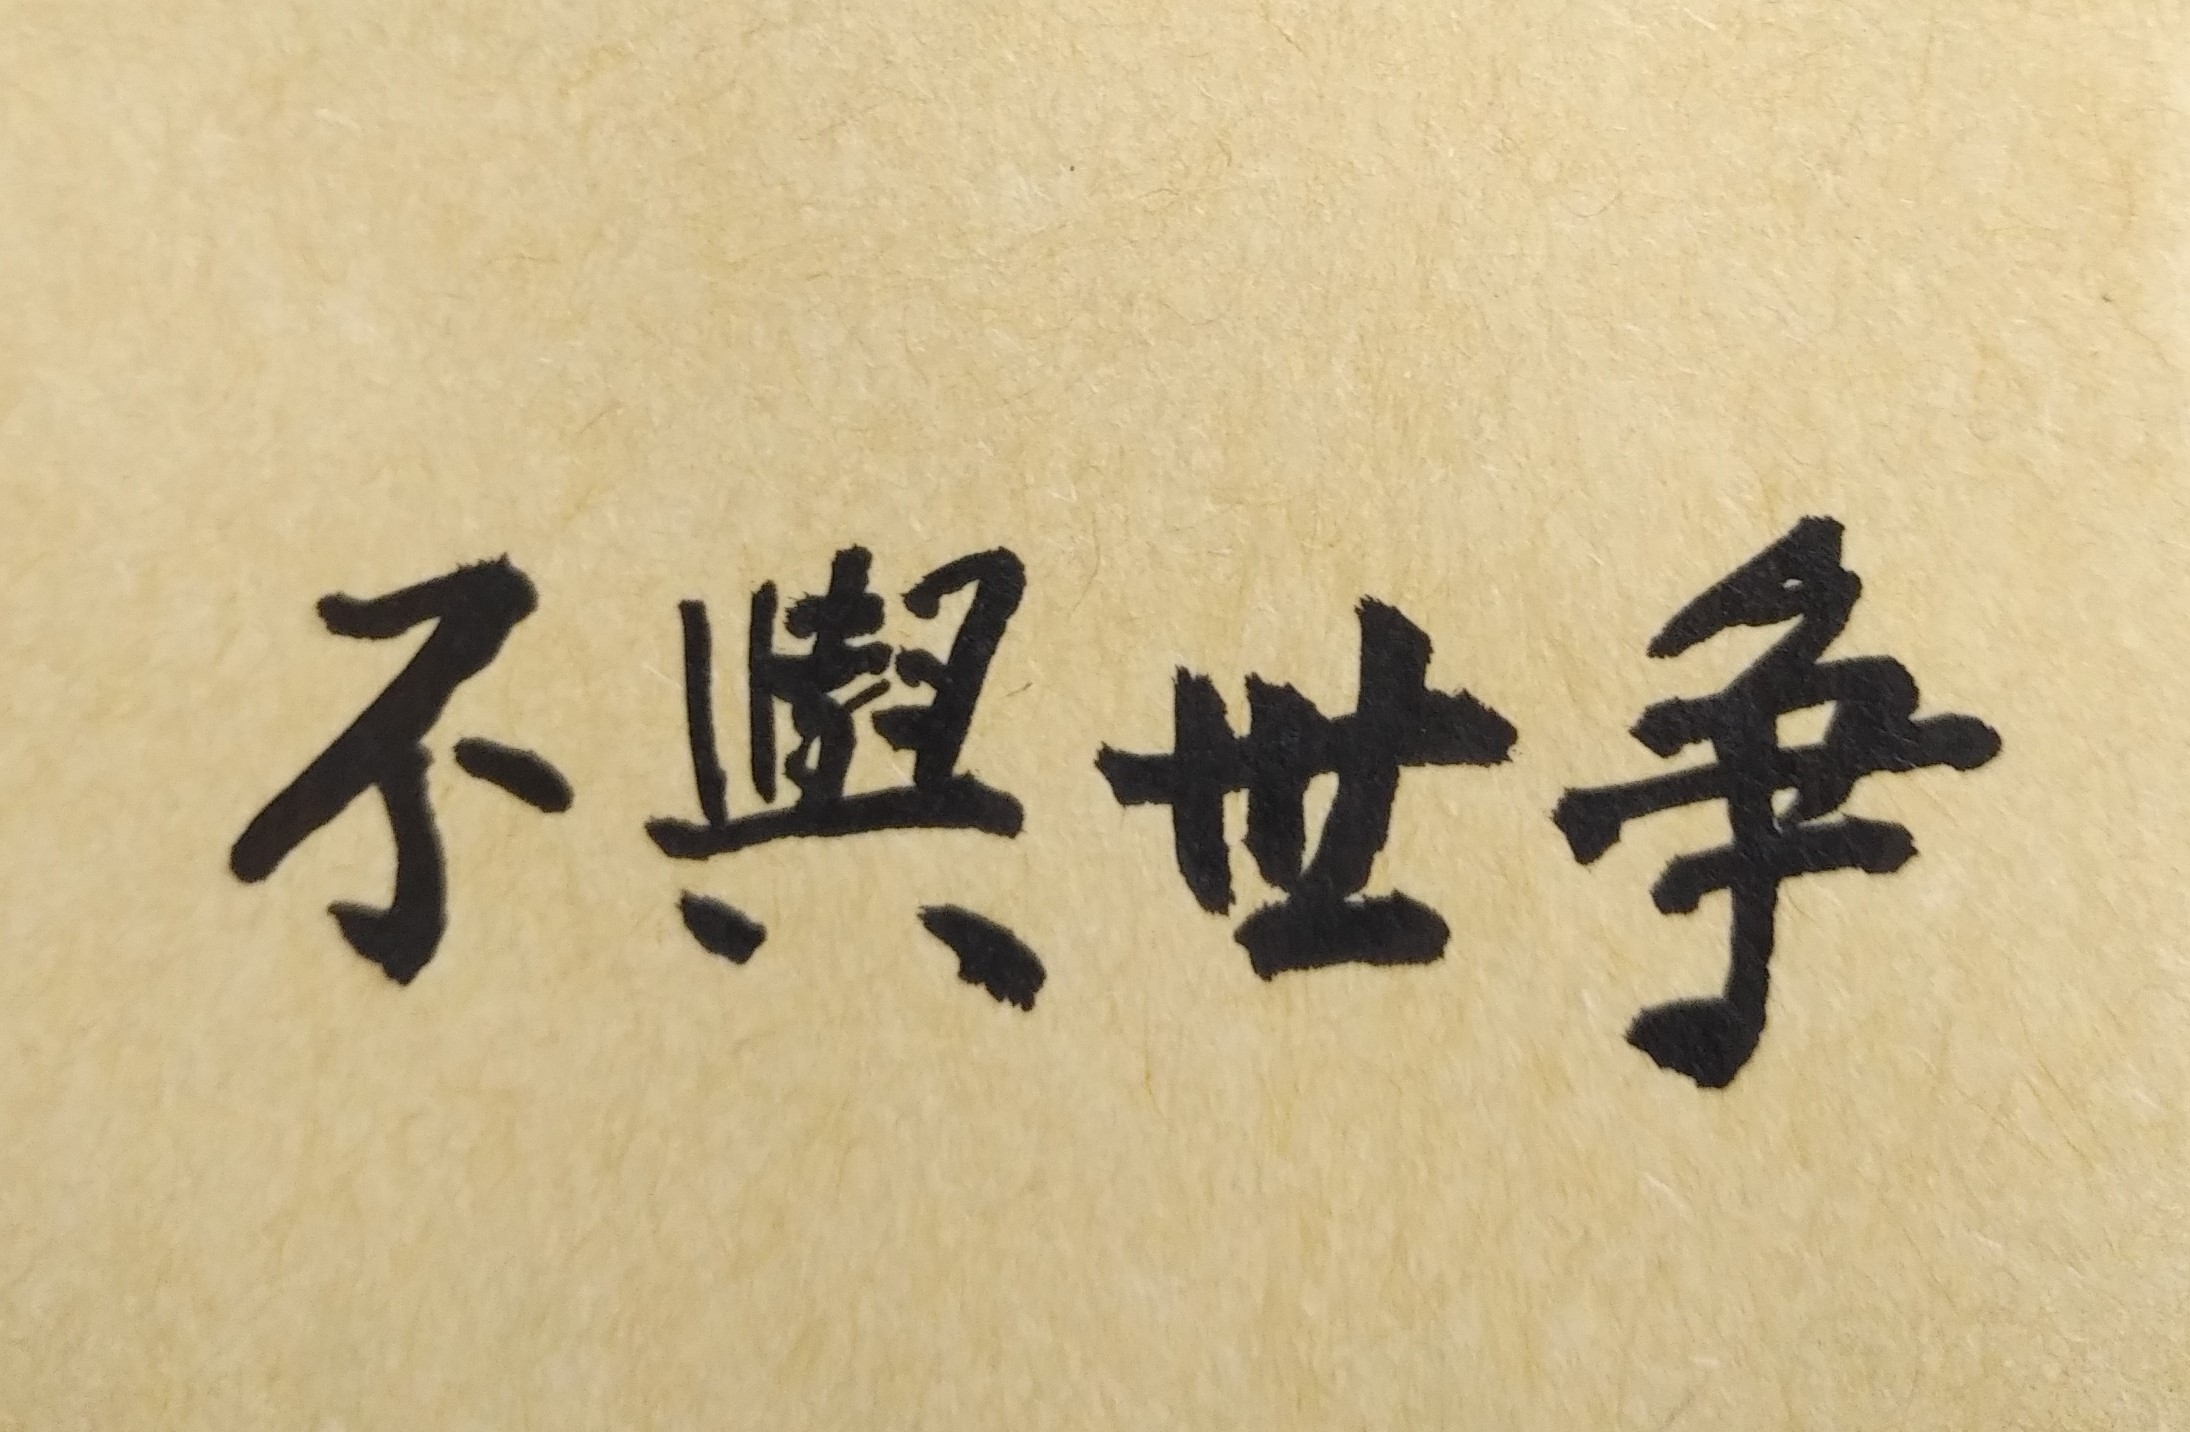 不與世爭